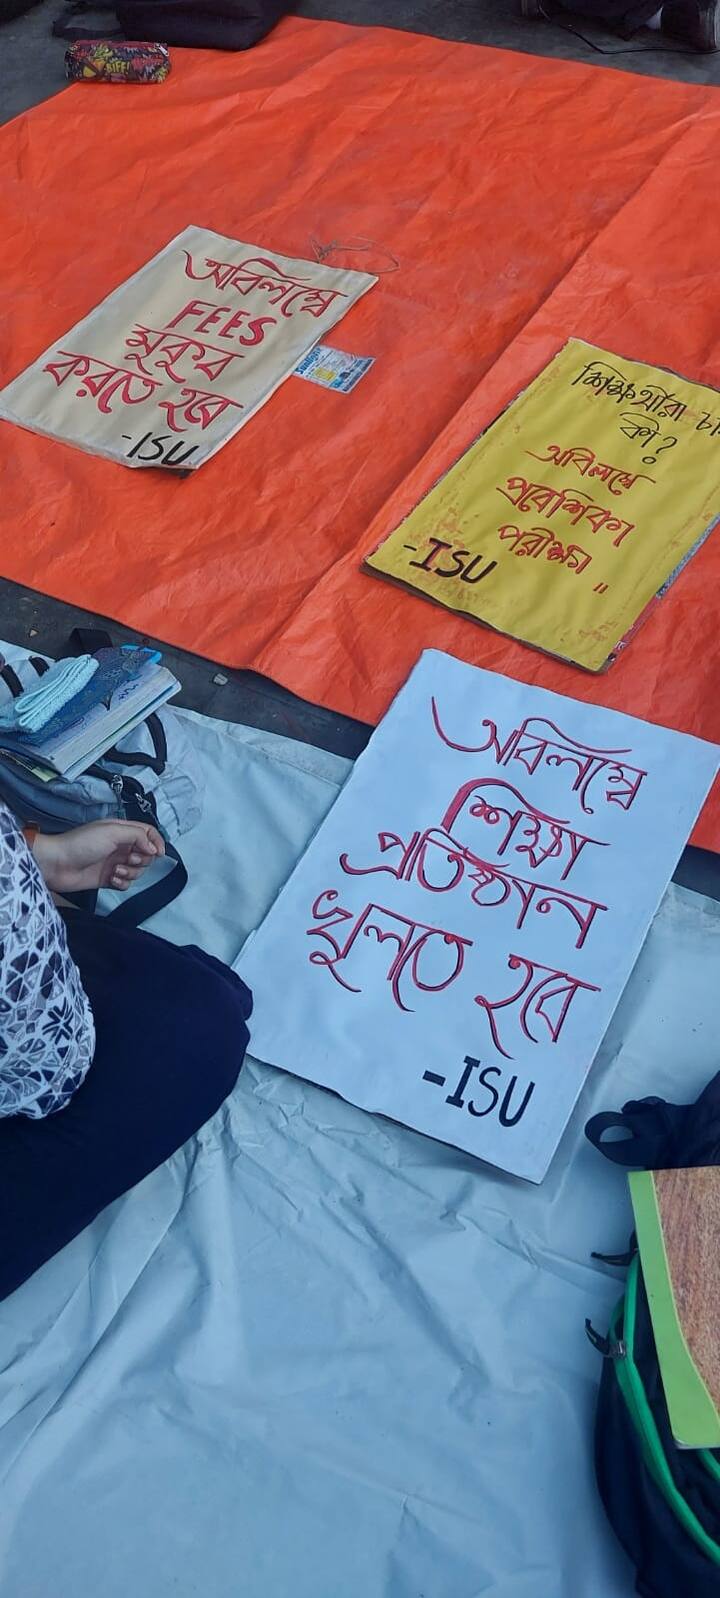 অবিলম্বে
FEES
মুকুব
করতে হবে
-ISU
শিক্ষার্থীরা
কী?
অবিলম্বে
প্রবেশিকা
পরীক্ষা "
-ISU
অবিলম্বে
শিক্ষা
প্রতিষ্ঠান
খুলতে হবে
-ISU